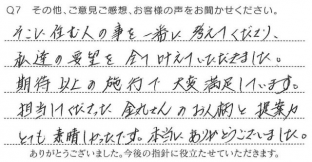 Q7 その他、ご意見ご感想、お客様の声をお聞かせください。
そこに住む人の事を一番に考えてくださり、
私達の要望を全て叶えていただきました。
期待以上の施行で大変満足しています。
担当してくださった金丸さんのお人柄と提案力
とても素晴しかったです。本当にありがとうございました。
ありがとうございました。今後の指針に役立たせていただきます。